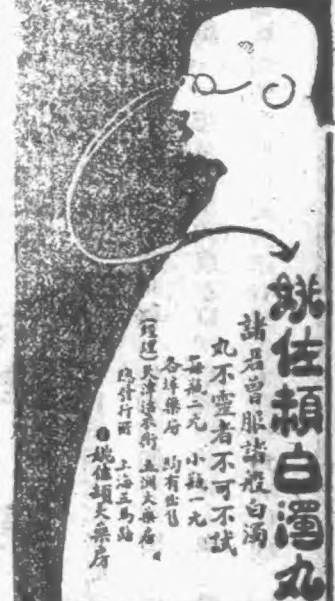 姚佐頓白濁丸
諸君曾服諸般白濁
丸不靈者不可不試
每瓶二元 小瓶一元
各埠藥房 均有出售
天津 五洲大藥房
總發行所 上海三馬路
姚佐頓大藥房